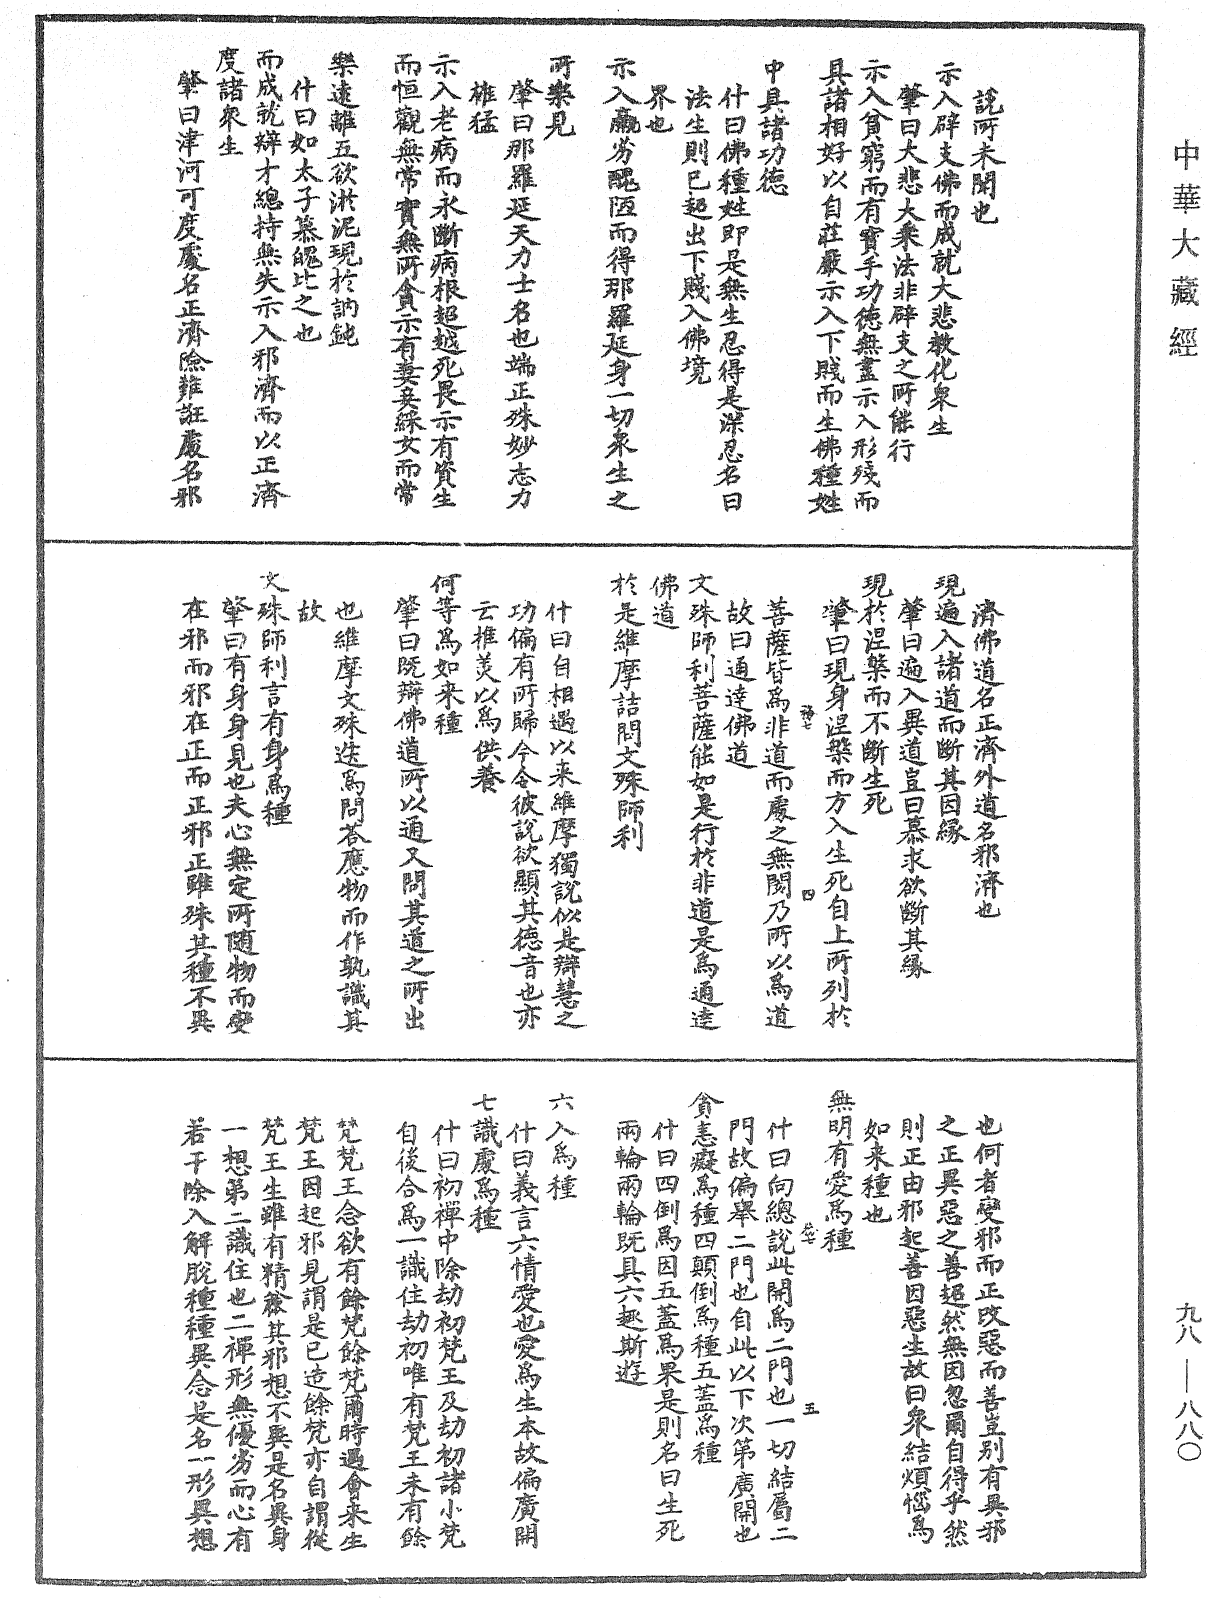 中華大藏經
說所未聞也
示入辟支佛而成就大悲教化衆生
肇曰大悲大乘法非辟支之所能行
示入貧窮而有寶手功德無盡示入形殘而
具諸相好以自莊嚴示入下賤而生佛種姓
中具諸功德
什曰佛種姓即是無生忍得是深忍名曰
法生則已超出下賤入佛境
界也
示入羸劣醜陋而得那羅延身一切衆生之
所樂見
肇曰那羅延天力士名也端正殊妙志力
雄猛
示入老病而永斷病根超越死畏示有資生
而恒觀無常實無所貪示有妻妾綵女而常
樂遠離五欲淤泥現於訥鈍
什曰如太子慕魄比之也
而成就辯才總持無失示入邪濟而以正濟
度諸衆生
肇曰津河可度處名正濟險難誑處名邪
濟佛道名正濟外道名邪濟也
現遍入諸道而斷其因緣
肇曰遍入異道豈曰慕求欲斷其緣
現於涅槃而不斷生死
肇曰現身涅槃而方入生死自上所列於
菩薩皆爲非道而處之無閡乃所以爲道
故曰通達佛道
文殊師利菩薩能如是行於非道是爲通達
佛道
於是維摩詰問文殊師利
什曰自相遇以来維摩獨說似是辯慧之
功偏有所歸今令彼說欲顯其德音也亦
云推美以爲供養
何等爲如来種
肇曰既辯佛道所以通又問其道之所出
也維摩文殊迭爲問荅應物而作孰識其
故
文殊師利言有身爲種
肇曰有身身見也夫心無定所隨物而變
在邪而邪在正而正邪正雖殊其種不異
四
也何者變邪而正改惡而善豈别有異邪
之正異惡之善超然無因忽爾自得乎然
則正由邪起善因惡生故曰衆結煩惱爲
如来種也
無明有愛爲種
什曰向總說此開爲二門也一切結屬二
門故偏舉二門也自此以下次第廣開也
貪恚癡爲種四顛倒爲種五蓋爲種
什曰四倒爲因五蓋爲果是則名曰生死
兩輪兩輪既具六趣斯遊
六入爲種
什曰義言六情愛也愛爲生本故偏廣開
七識處爲種
什曰初禪中除劫初梵王及劫初諸小梵
自後合爲一識住劫初唯有梵王未有餘
梵梵王念欲有餘梵餘梵爾時遇會来生
梵王因起邪見謂是已造餘梵亦自謂從
梵王生雖有精麤其邪想不異是名異身
一想第二識住也二禪形無優劣而心有
若干除入解脫種種異念是名一形異想
五
九八—八八〇